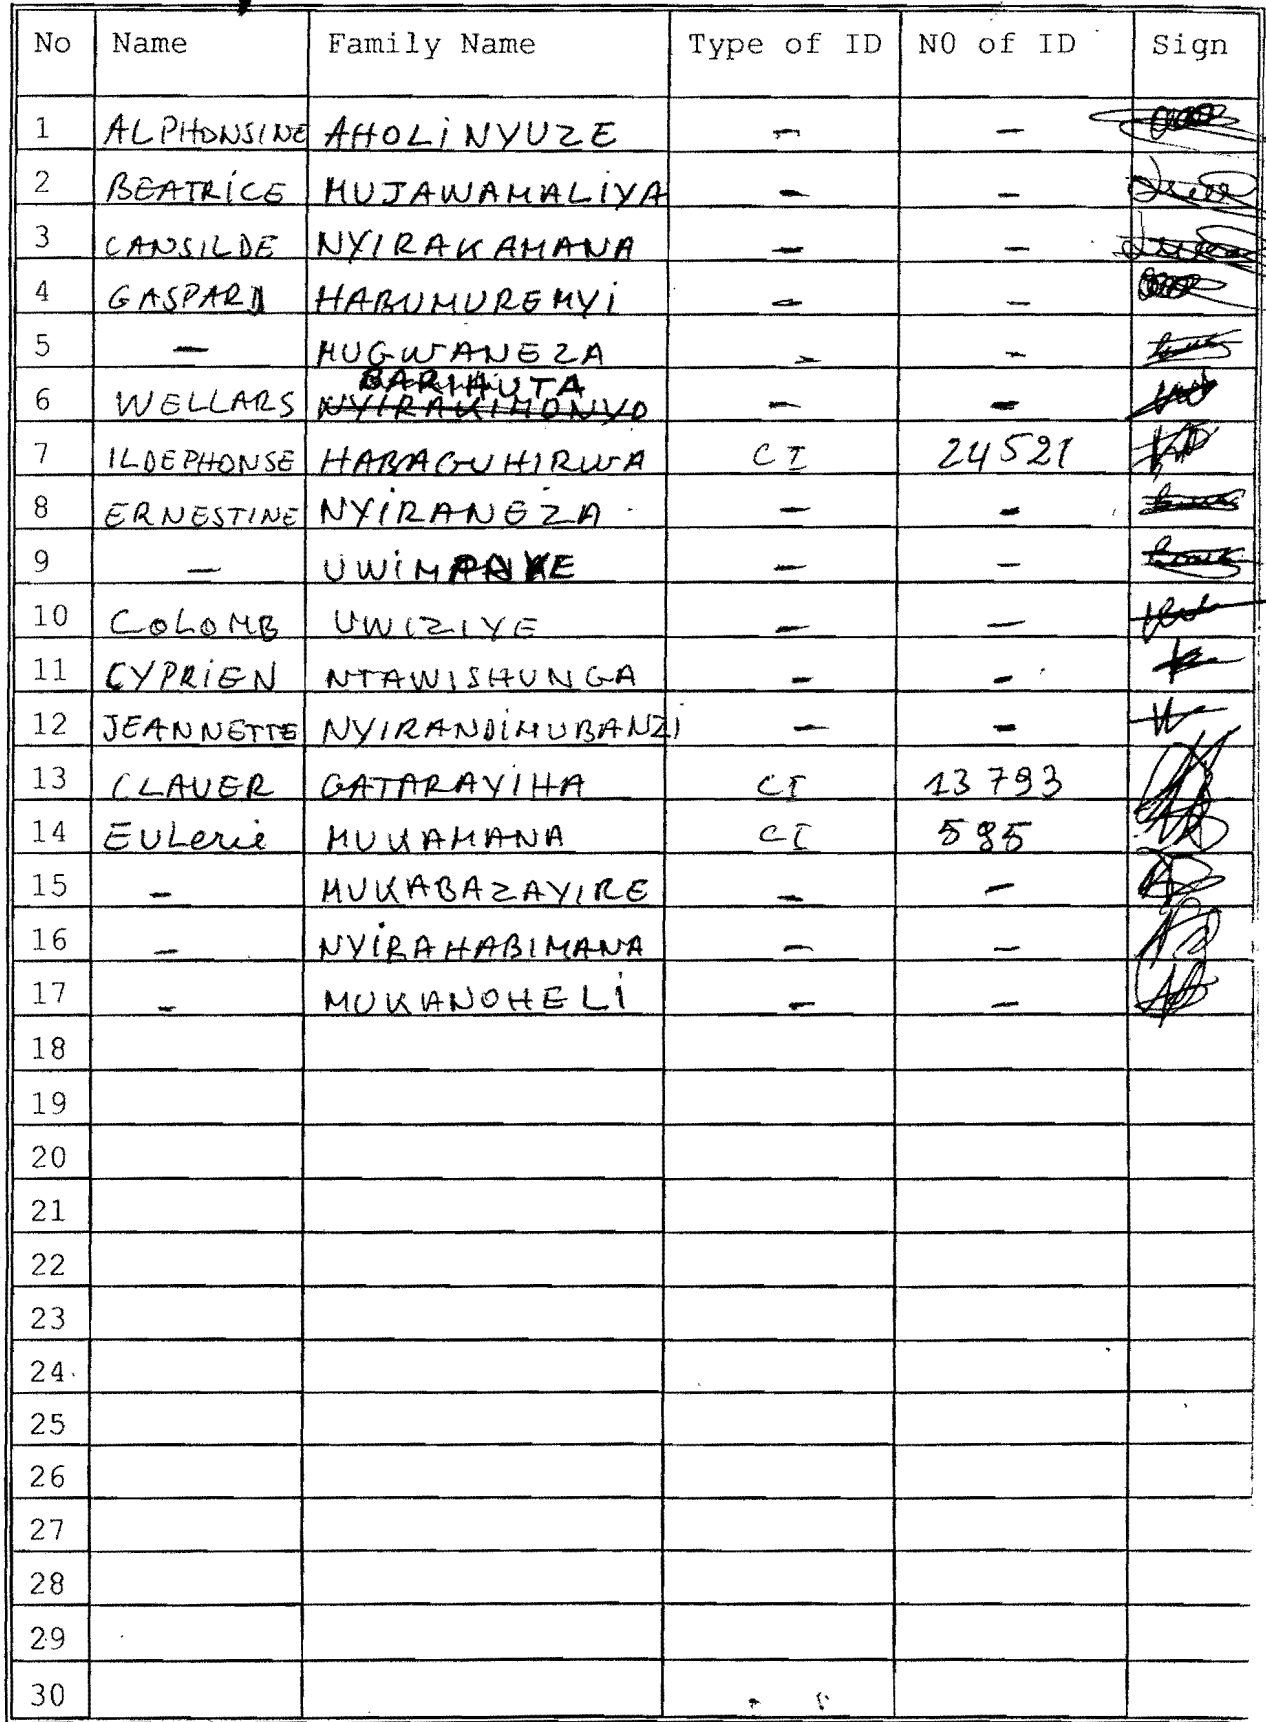 No Name Family Name Type of ID N0 of ID Sign
1 ALPHONSINE AHOLINYUZE - -
2 BEATRICE MUJAWAMALIYA - -
3 CANSILDE NYIRAKAMANA - -
4 GASPARD HABUMUREMYI - -
5 - MUGWANEZA - -
BARIHUTA
6 WELLARS NYIRAKIMONYO - -
7 ILDEPHONSE HABAGUHIRWA CI 24521
8 ERNESTINE NYIRANEZA - -
9 - UWIMANA - -
10 COLOMB UWIZIYE - -
11 CYPRIEN NTAWISHUNGA - -
12 JEANNETTE NYIRANDIMUBANZI - -
13 CLAVER GATARAYIHA CI 13793
14 EULerie MUKAMANA CI 595
15 - MUKABAZAYIRE - -
16 - NYIRAHABIMANA - -
17 - MUKANOHELI - -
18
19
20
21
22
23
24
25
26
27
28
29
30